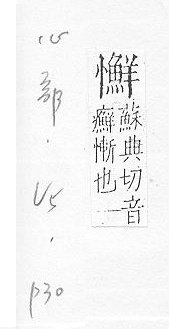 蘇典切音
癬慚也一
心部.V5.
p30